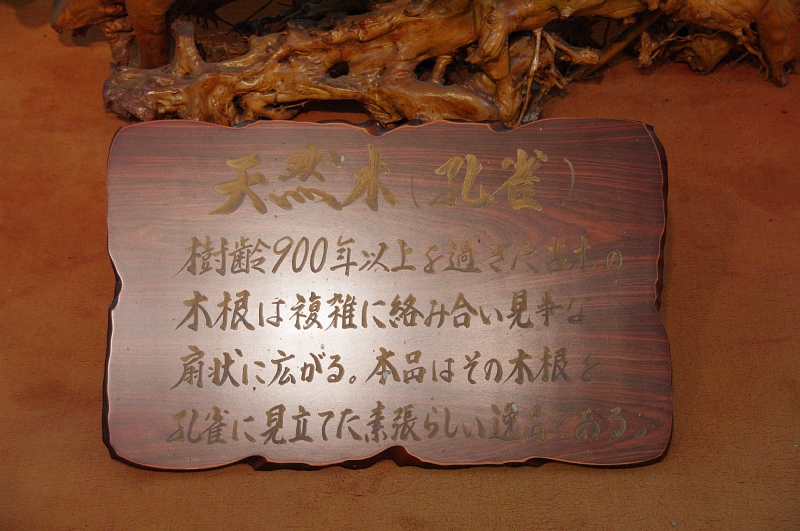 天然木(孔雀)
樹齢900年以上を過ぎた古木の
木根は複雑に絡み合い見事な
扇状に広がる。本品はその木根を
孔雀に見立てた素張らしい逸品である。